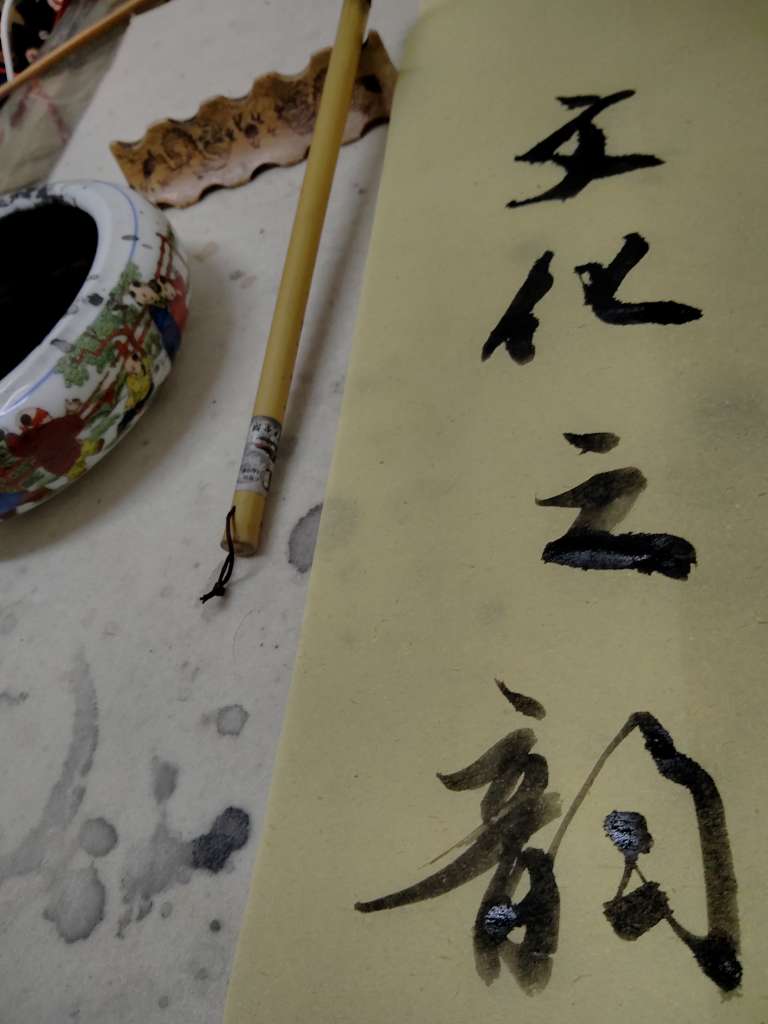 文化之韵